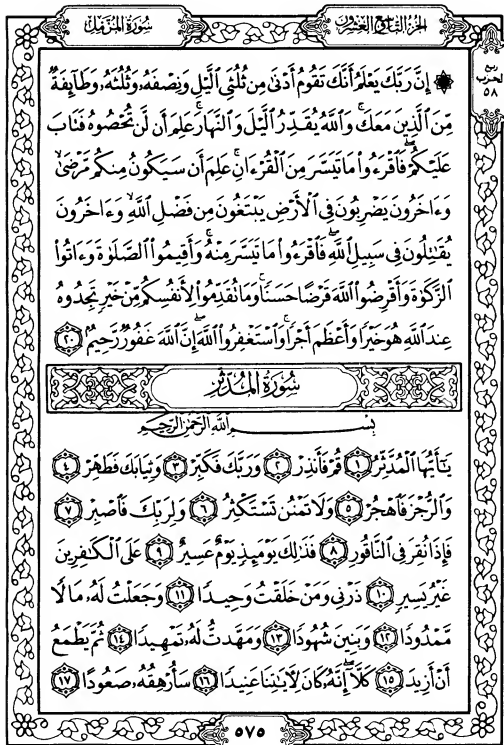 الجزء التاسع والعشرون
سورة المزمل
ربع
الحزب
٥٨
۞ إِنَّ رَبَّكَ يَعْلَمُ أَنَّكَ تَقُومُ أَدْنَىٰ مِن ثُلُثَيِ الَّيْلِ وَنِصْفَهُۥ وَثُلُثَهُۥ وَطَآئِفَةٌ
مِّنَ الَّذِينَ مَعَكَ ۚ وَاللَّهُ يُقَدِّرُ الَّيْلَ وَالنَّهَارَ ۚ عَلِمَ أَن لَّن تُحْصُوهُ فَتَابَ
عَلَيْكُمْ ۖ فَاقْرَءُوا۟ مَا تَيَسَّرَ مِنَ الْقُرْءَانِ ۚ عَلِمَ أَن سَيَكُونُ مِنكُم مَّرْضَىٰ ۙ
وَءَاخَرُونَ يَضْرِبُونَ فِي الْأَرْضِ يَبْتَغُونَ مِن فَضْلِ اللَّهِ ۙ وَءَاخَرُونَ
يُقَٰتِلُونَ فِي سَبِيلِ اللَّهِ ۖ فَاقْرَءُوا۟ مَا تَيَسَّرَ مِنْهُ ۚ وَأَقِيمُوا۟ الصَّلَوٰةَ وَءَاتُوا۟
الزَّكَوٰةَ وَأَقْرِضُوا۟ اللَّهَ قَرْضًا حَسَنًا ۚ وَمَا تُقَدِّمُوا۟ لِأَنفُسِكُم مِّنْ خَيْرٍ تَجِدُوهُ
عِندَ اللَّهِ هُوَ خَيْرًا وَأَعْظَمَ أَجْرًا ۚ وَاسْتَغْفِرُوا۟ اللَّهَ ۖ إِنَّ اللَّهَ غَفُورٌ رَّحِيمٌۢ ٢٠
سورة المدثر
بِسْمِ اللَّهِ الرَّحْمَٰنِ الرَّحِيمِ
يَٰٓأَيُّهَا الْمُدَّثِّرُ ١ قُمْ فَأَنذِرْ ٢ وَرَبَّكَ فَكَبِّرْ ٣ وَثِيَابَكَ فَطَهِّرْ ٤
وَالرُّجْزَ فَاهْجُرْ ٥ وَلَا تَمْنُن تَسْتَكْثِرُ ٦ وَلِرَبِّكَ فَاصْبِرْ ٧
فَإِذَا نُقِرَ فِي النَّاقُورِ ٨ فَذَٰلِكَ يَوْمَئِذٍ يَوْمٌ عَسِيرٌ ٩ عَلَى الْكَٰفِرِينَ
غَيْرُ يَسِيرٍ ١٠ ذَرْنِي وَمَنْ خَلَقْتُ وَحِيدًا ١١ وَجَعَلْتُ لَهُۥ مَالًا
مَّمْدُودًا ١٢ وَبَنِينَ شُهُودًا ١٣ وَمَهَّدتُّ لَهُۥ تَمْهِيدًا ١٤ ثُمَّ يَطْمَعُ
أَنْ أَزِيدَ ١٥ كَلَّآ ۖ إِنَّهُۥ كَانَ لِءَايَٰتِنَا عَنِيدًا ١٦ سَأُرْهِقُهُۥ صَعُودًا ١٧
٥٧٥